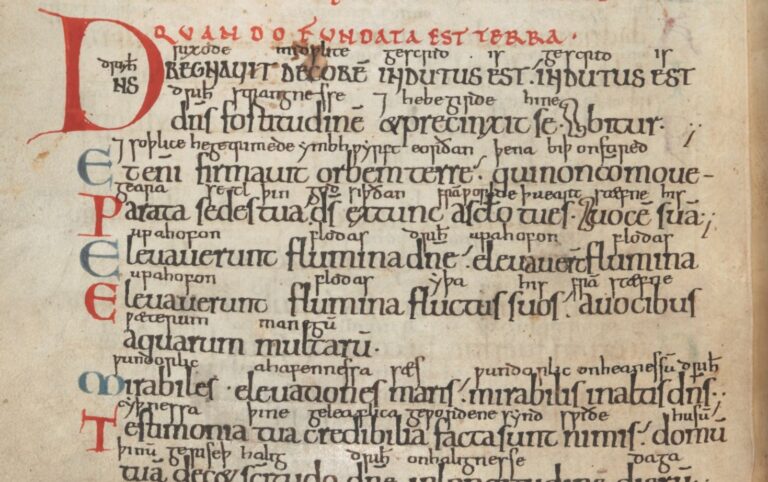 QUANDO FUNDATA EST TERRA.
drih rixode gescrito is gescrito is
DNS REGNAUIT DECORĒ INDUTUS EST. INDUTUS EST
drih strangnesse ⁊ hebegirde hine
dn̄s fortitudinē & precinxit se. bitur.
⁊ soþlice hegetrimede ymbhwyrft eorðan þena biþ onstyred
Etenī firmauit orbem terre. qui non comoue-
gearu setl þin god siððan worulde þueart stæfne his
Parata sedes tua ds̄ extunc asclo tu es. Uocē suā
upahofon flodas drih upahofon flodas
Eleuauerunt flumina dn̄e. eleuauert̄ flumina
upahofon flodas yþa his frā stæfne
Eleuauerunt flumina fluctus suos. auocibus
wæterum manegū
aquarum multarū.
wundorlic ahafennessa sæs wundorlic onheanessū drih
Mirabiles. eleuationes maris. mirabilis inaltis dn̄s.
cyþnessa þine geleaflica gewordene synd swiðe husū
Testimonia tua credibilia facta sunt nimis. domū
þinū geriseþ halig drih onhalignesse daga
tuā dec& scitudo dn̄e inlongitudine dierū.